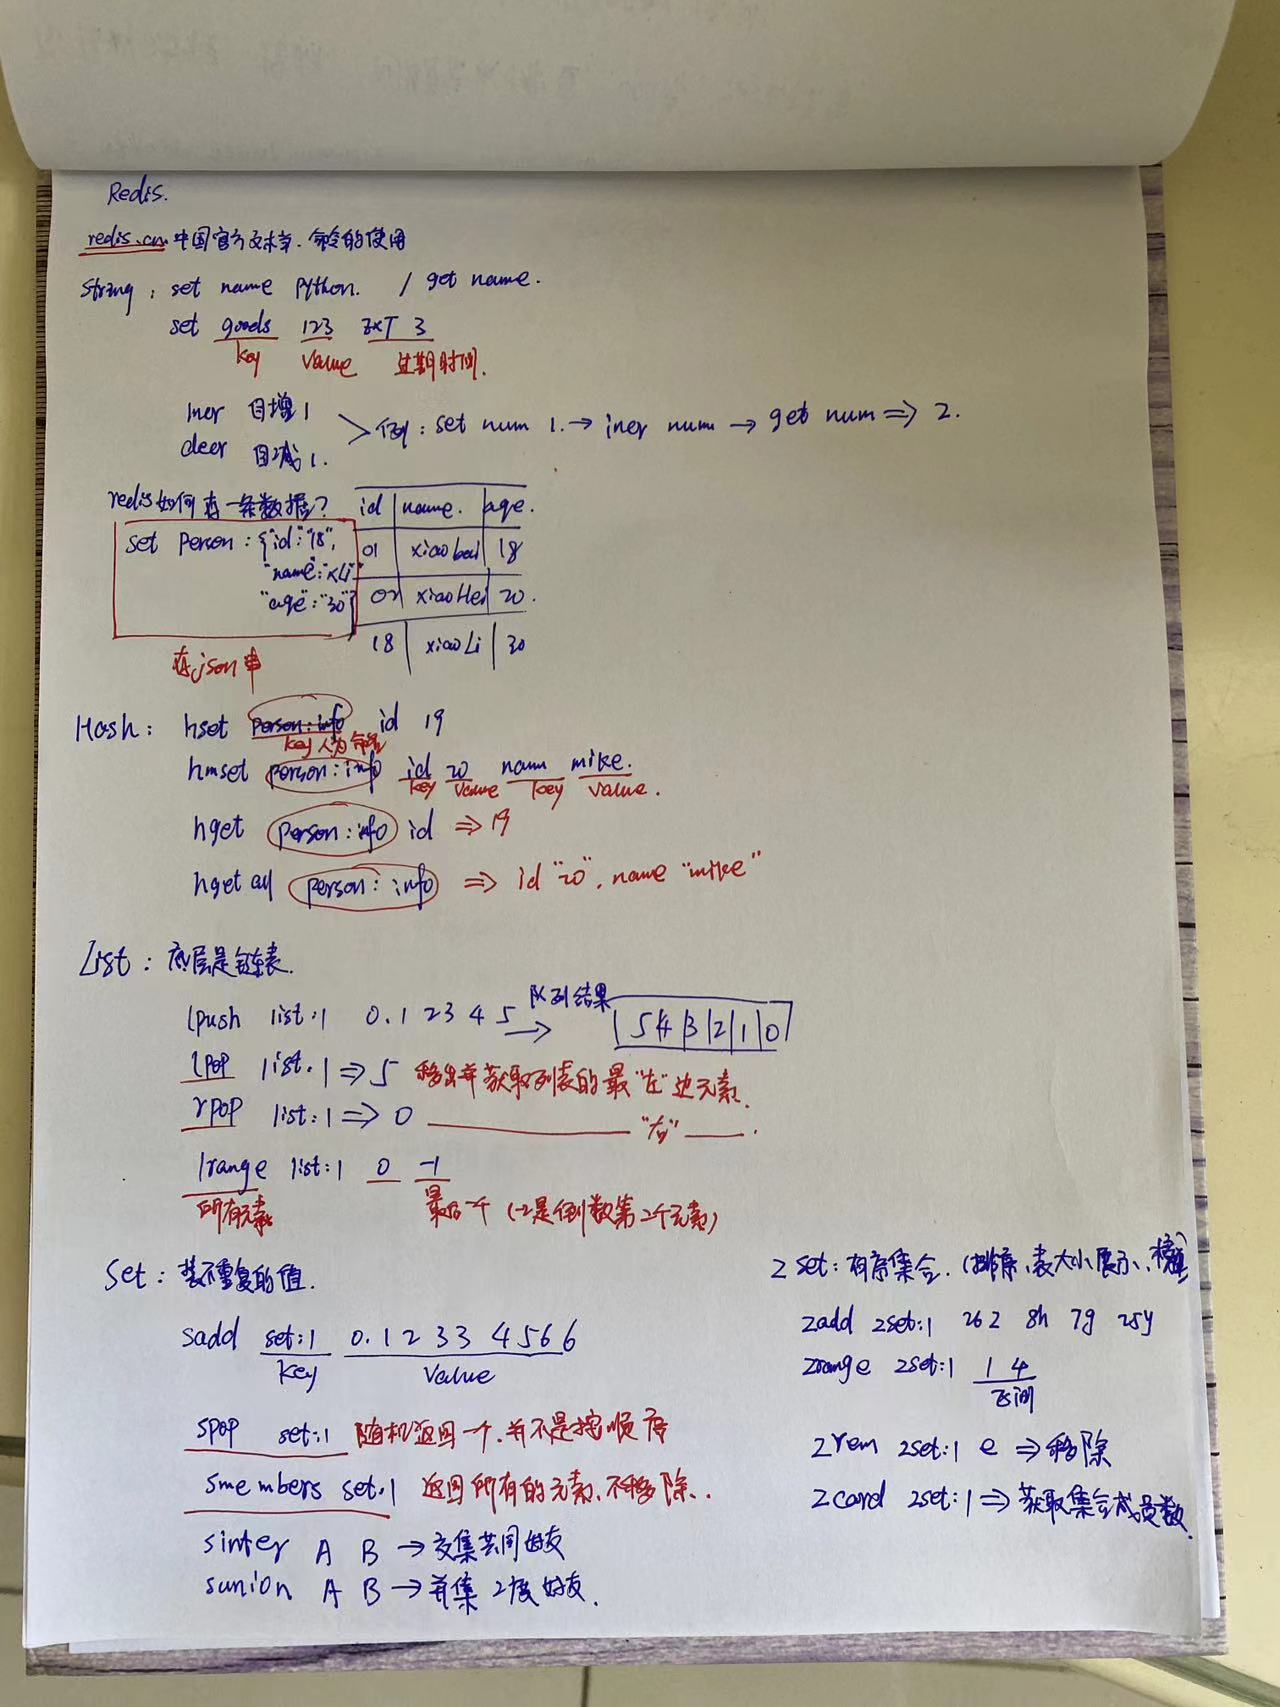 Redis.
redis.cn. 中国官方文本、命令的使用
String: set name python. / get name.
set goods 123 EXT 3
key value 过期时间.
incr 自增1
decr 自减1.
例: set num 1. → incr num → get num => 2.
redis如何存一条数据?
id name. age.
01 xiaobai 18
02 xiaoHei 20.
18 xiaoLi 30
set person: {"id":"18",
"name":"xLi"
"age":"30"}
存json串
Hash: hset person:info id 19
key 人为命名
hmset person:info id 20 name mike.
key value key value.
hget person:info id => 19
hget all person:info => id "20", name "mike"
List: 底层是链表.
lpush list:1 0.1 2 3 4 5 → 队列结果 5 4 3 2 1 0
lpop list:1 => 5 移出并获取列表的最"左"边元素.
rpop list:1 => 0 ———— "右" ——.
lrange list:1 0 -1
所有元素 最后一个 (-2是倒数第2个元素)
Set: 装不重复的值.
sadd set:1 0.1 2 3 3 4 5 6 6
key value
spop set:1 随机返回一个,并不是按顺序
smembers set:1 返回所有的元素、不移除..
sinter A B → 交集共同好友
sunion A B → 并集 2度好友.
Z set: 有序集合. (排序、表大小展示、榜单)
zadd zset:1 26z 8h 7g 25y
zrange zset:1 1 4
区间
zrem zset:1 e => 移除
zcard zset:1 => 获取集合成员数.